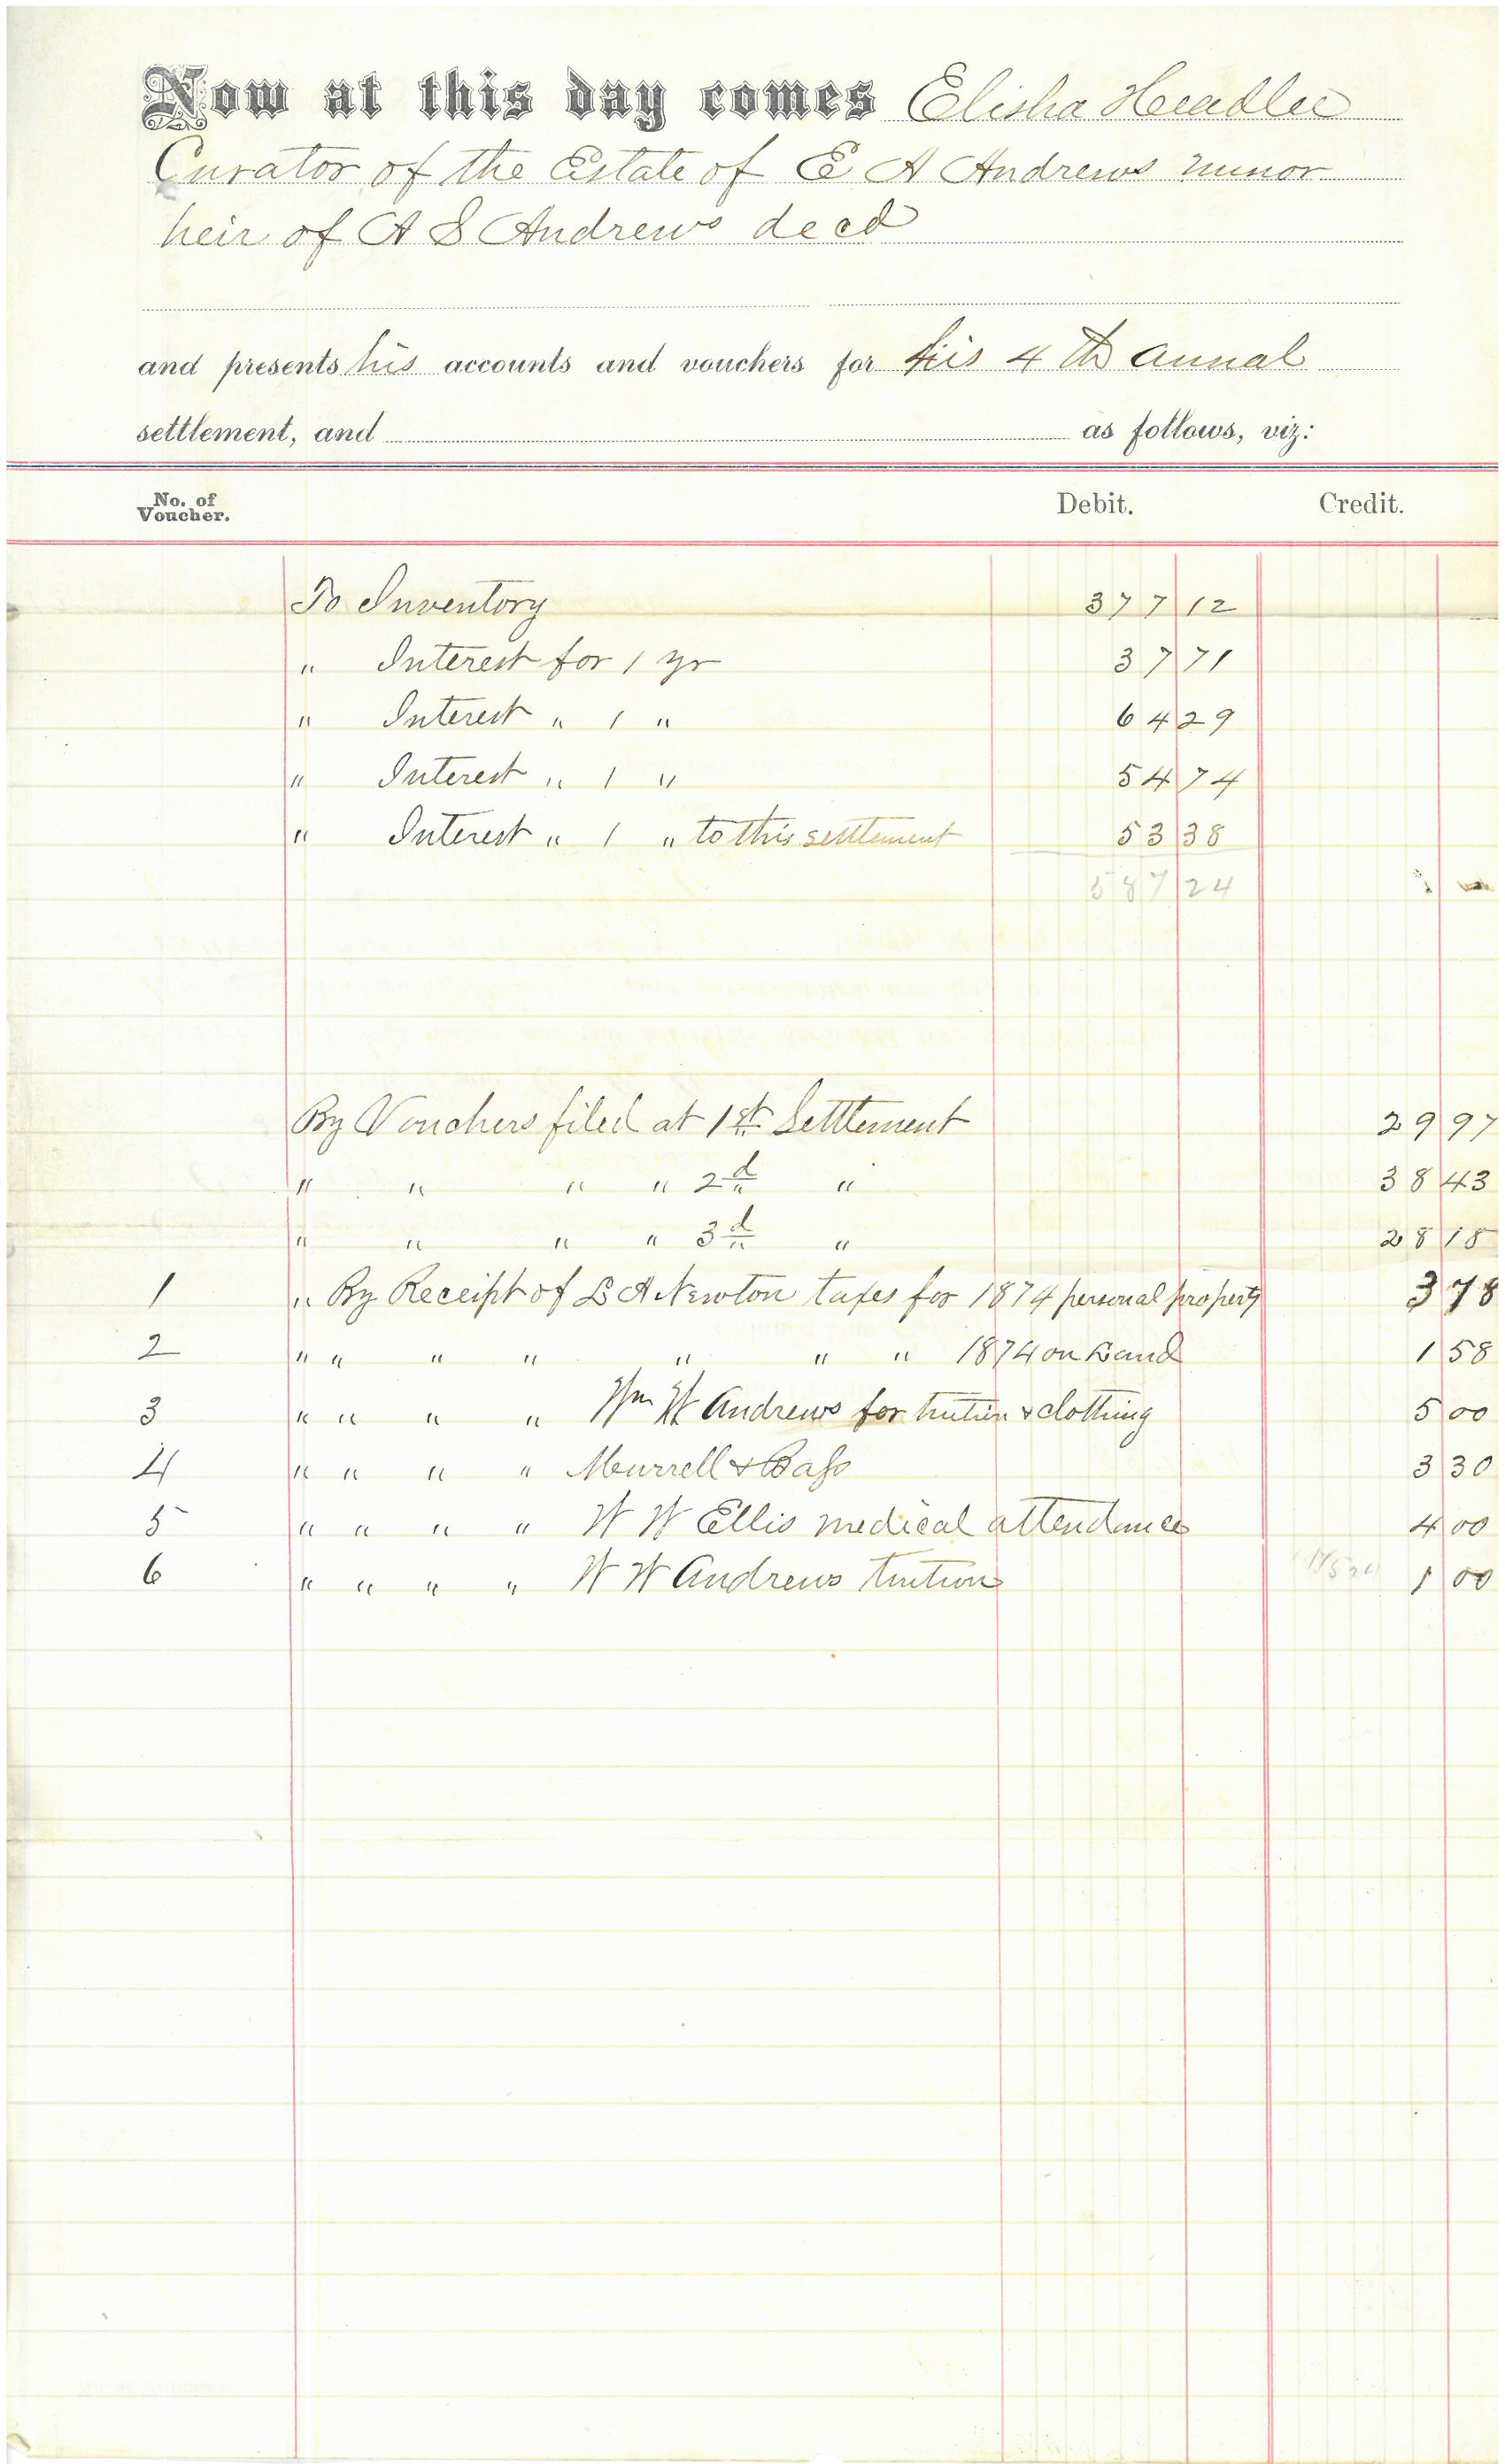 Now at this day comes Elisha Headlee
Curator of the Estate of E A Andrews minor
heir of A S Andrews decd
and presents his accounts and vouchers for his 4th annual
settlement, and as follows, viz:
No. of Voucher. Debit. Credit.
To Inventory 377 12
" Interest for 1 yr 37 71
" Interest " 1 " 64 29
" Interest " 1 " 54 74
" Interest " 1 " to this settlement 53 38
587 24
By Vouchers filed at 1st Settlement 29 97
" " " " 2d " 38 43
" " " " 3d " 28 18
1 " By Receipt of L A Newton taxes for 1874 personal property 3 78
2 " " " " " " " 1874 on Land 1 58
3 " " " " Wm W Andrews for tution & clothing 5 00
4 " " " " Murrell & Bass 3 30
5 " " " " W W Ellis medical attendance 4 00
6 " " " " W W Andrews tution 1 00